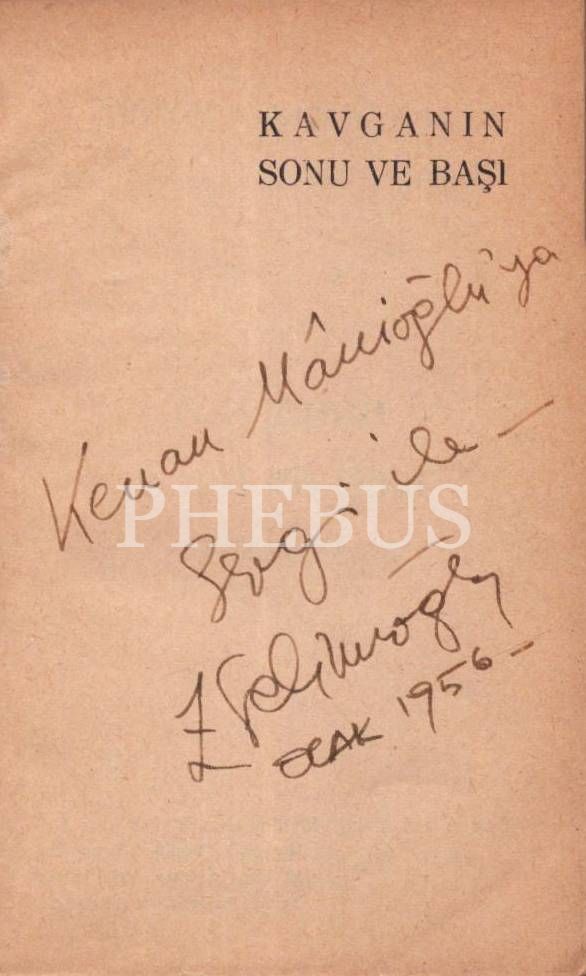 KAVGANIN
SONU VE BAŞI
Kenan Mânioğlu'ya
Sevgi ile
PHEBUS
Z Selimoğlu
OCAK 1956